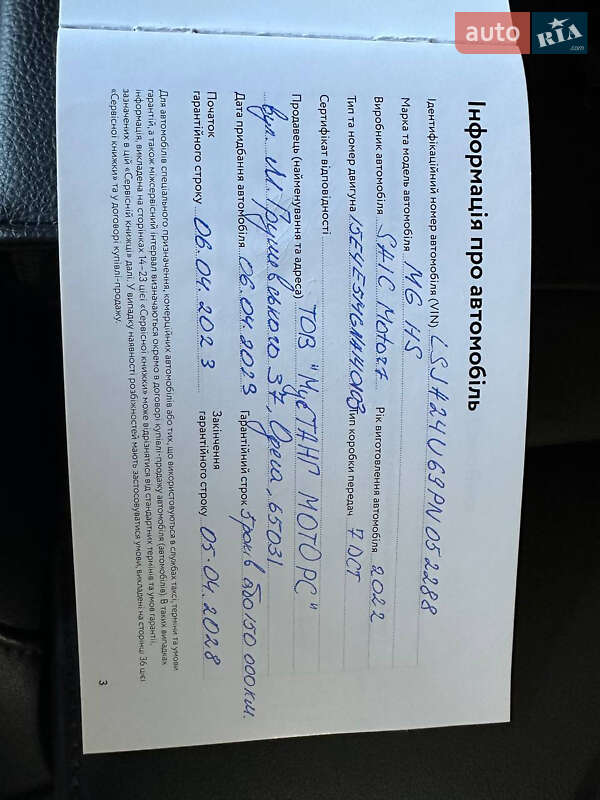 auto RIA .com
Інформація про автомобіль
Ідентифікаційний номер автомобіля (VIN) LSJA24U69PN052288
Марка та модель автомобіля MG HS
Виробник автомобіля SAIC Motors Рік виготовлення автомобіля 2022
Тип та номер двигуна Тип коробки передач 7 DCT
Сертифікат відповідності
Продавець (найменування та адреса) ТОВ "МУСТАНГ МОТОРС"
вул. М. Грушевського 37, Одеса, 65031
Дата придбання автомобіля 06.04.2023 Гарантійний строк 5 років або 150 000 км.
Початок гарантійного строку 06.04.2023 Закінчення гарантійного строку 05.04.2028
Для автомобілів спеціального призначення, комерційних автомобілів або тих, що використовуються в службах таксі, терміни та умови
гарантій, а також міжсервісний інтервал визначаються окремо в договорі купівлі-продажу автомобіля (автомобілів). В таких випадках
інформація, викладена на сторінках 14-23 цієї «Сервісної книжки» може відрізнятися від стандартних термінів та умов гарантії,
зазначених в цій «Сервісній книжці» далі. У випадку наявності розбіжностей мають застосовуватися умови, викладені на сторінці 36 цієї
«Сервісної книжки» та у договорі купівлі-продажу.
3